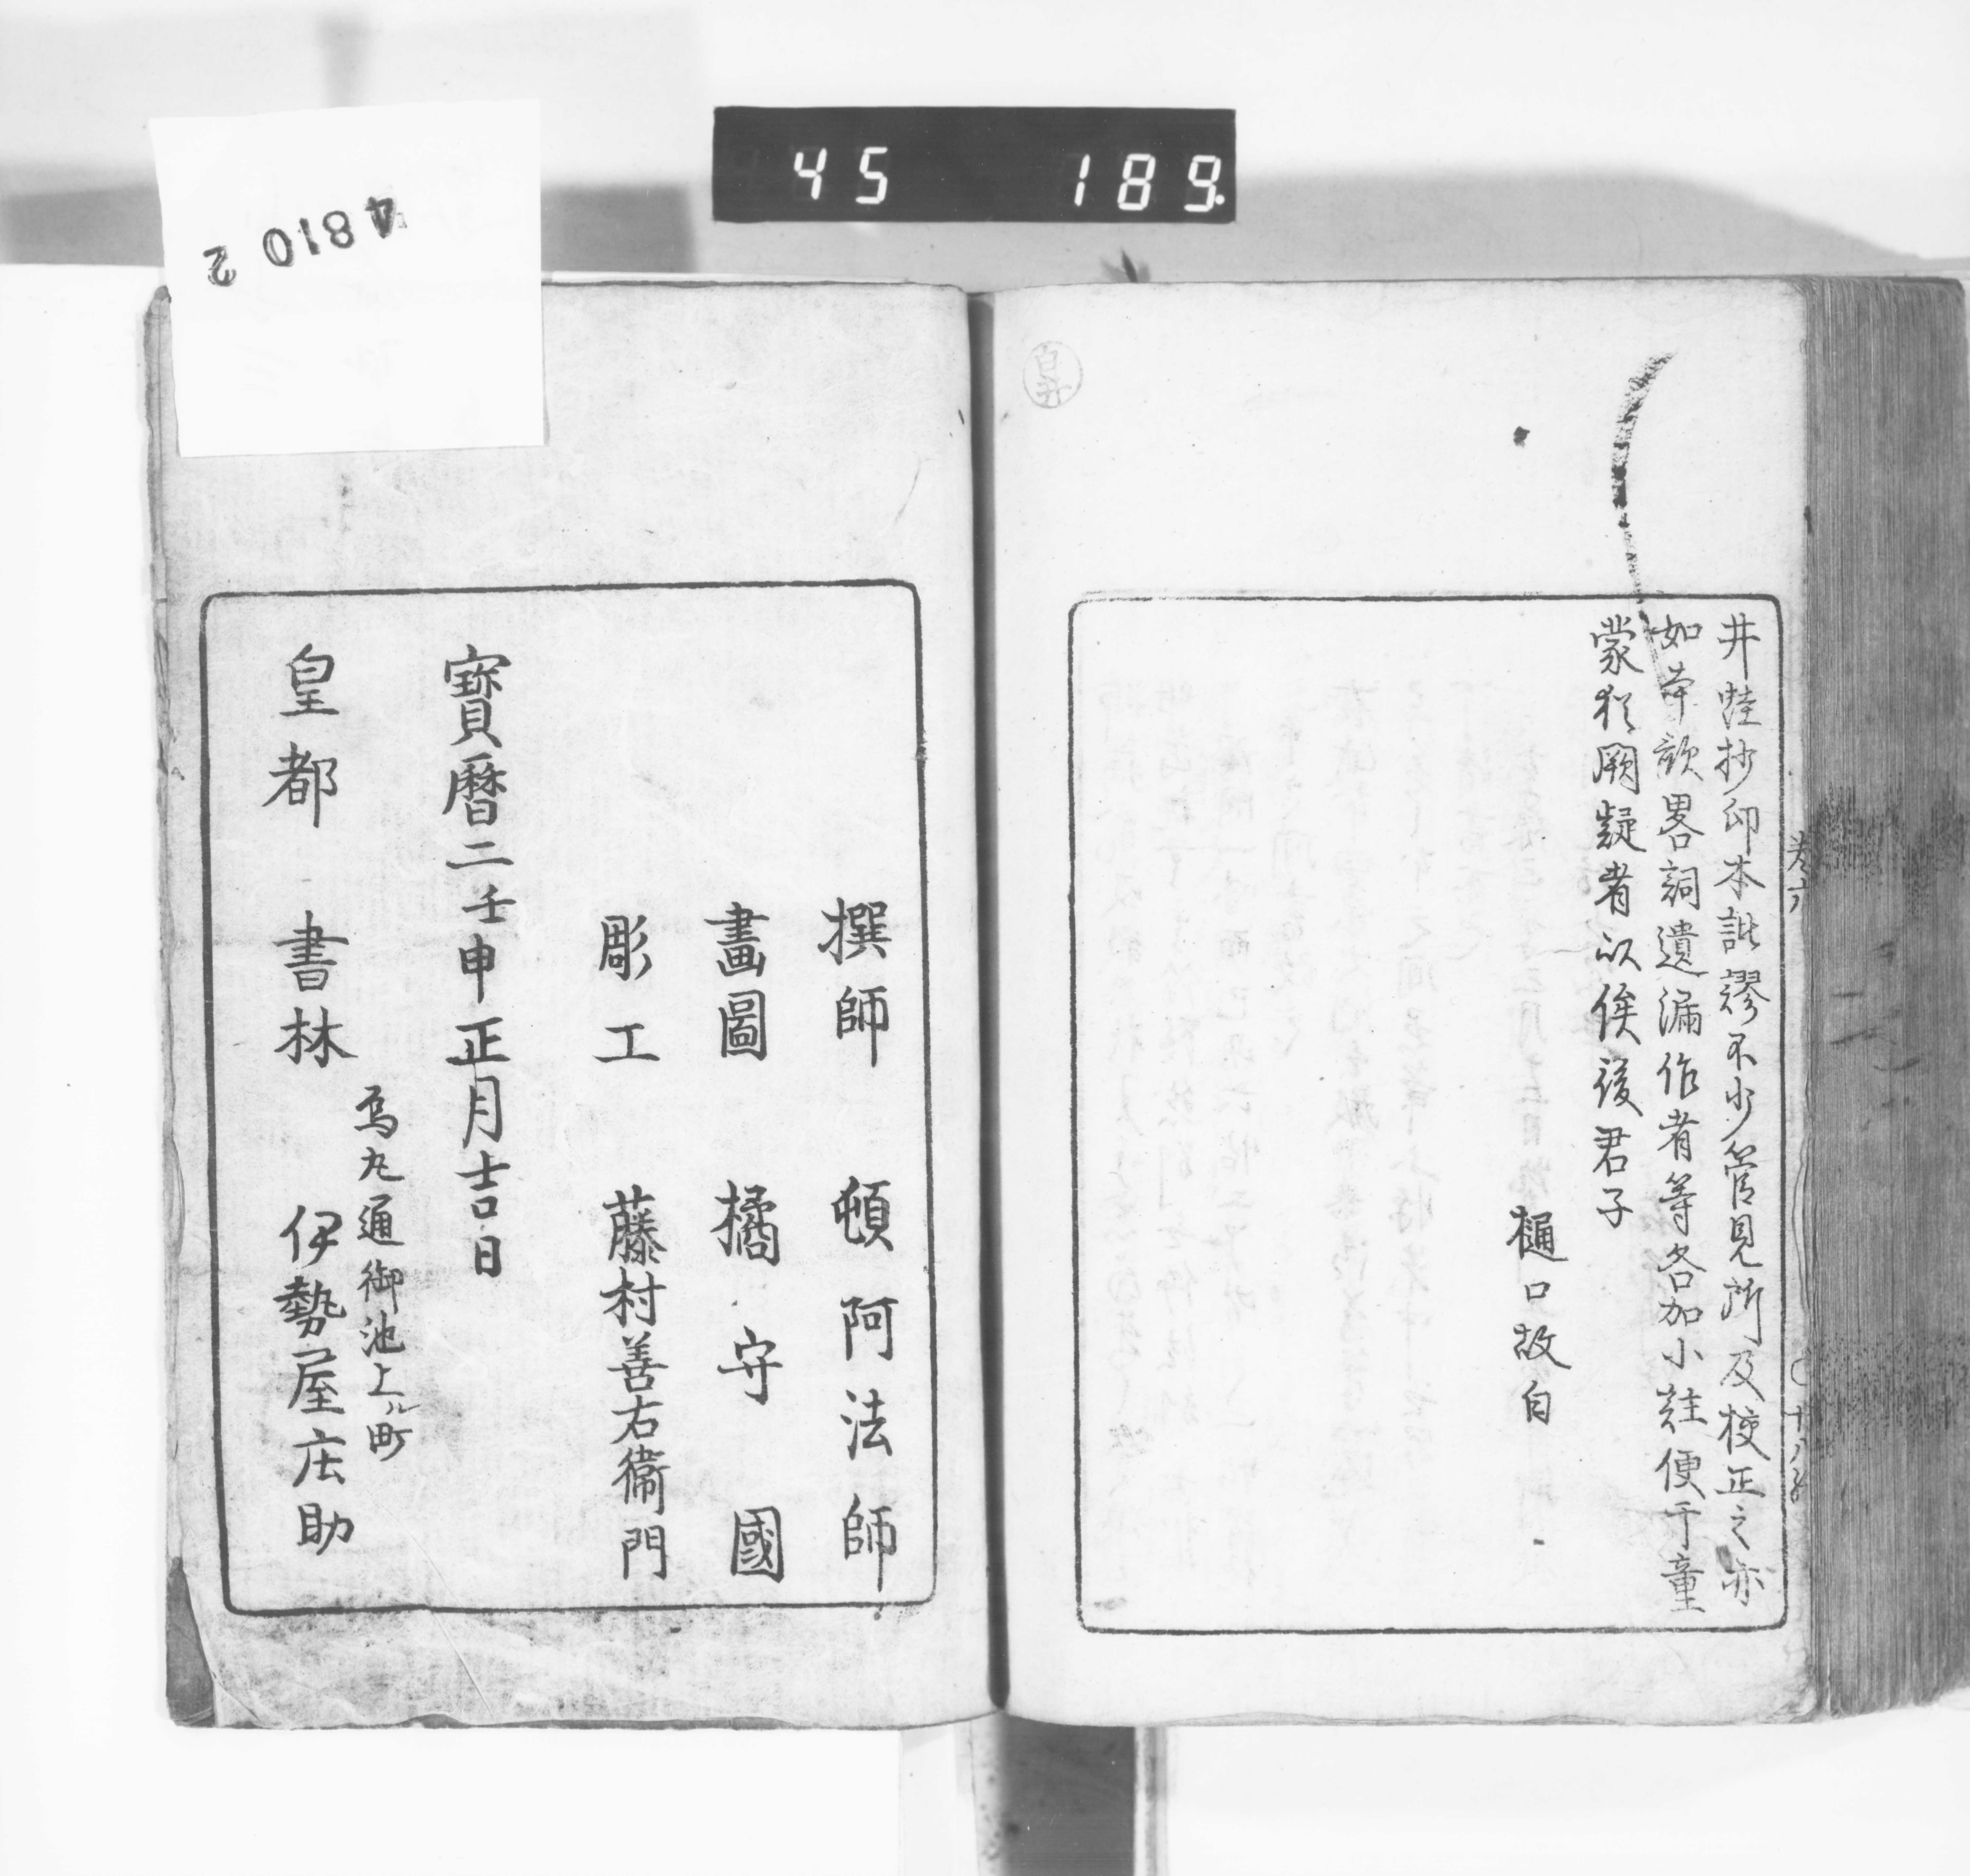 45 189.
4810 2
井蛙抄印本訛謬不少管見所及校正之亦
如本歌畧詞遺漏作者等各加小註便于童
蒙猶闕疑者以俟後君子
樋口故自
巻六
十八
撰師 頓阿法師
畫圖 橘守國
彫工 藤村善右衛門
寶暦二壬申正月吉日
烏丸通御池上ル町
皇都 書林 伊勢屋庄助